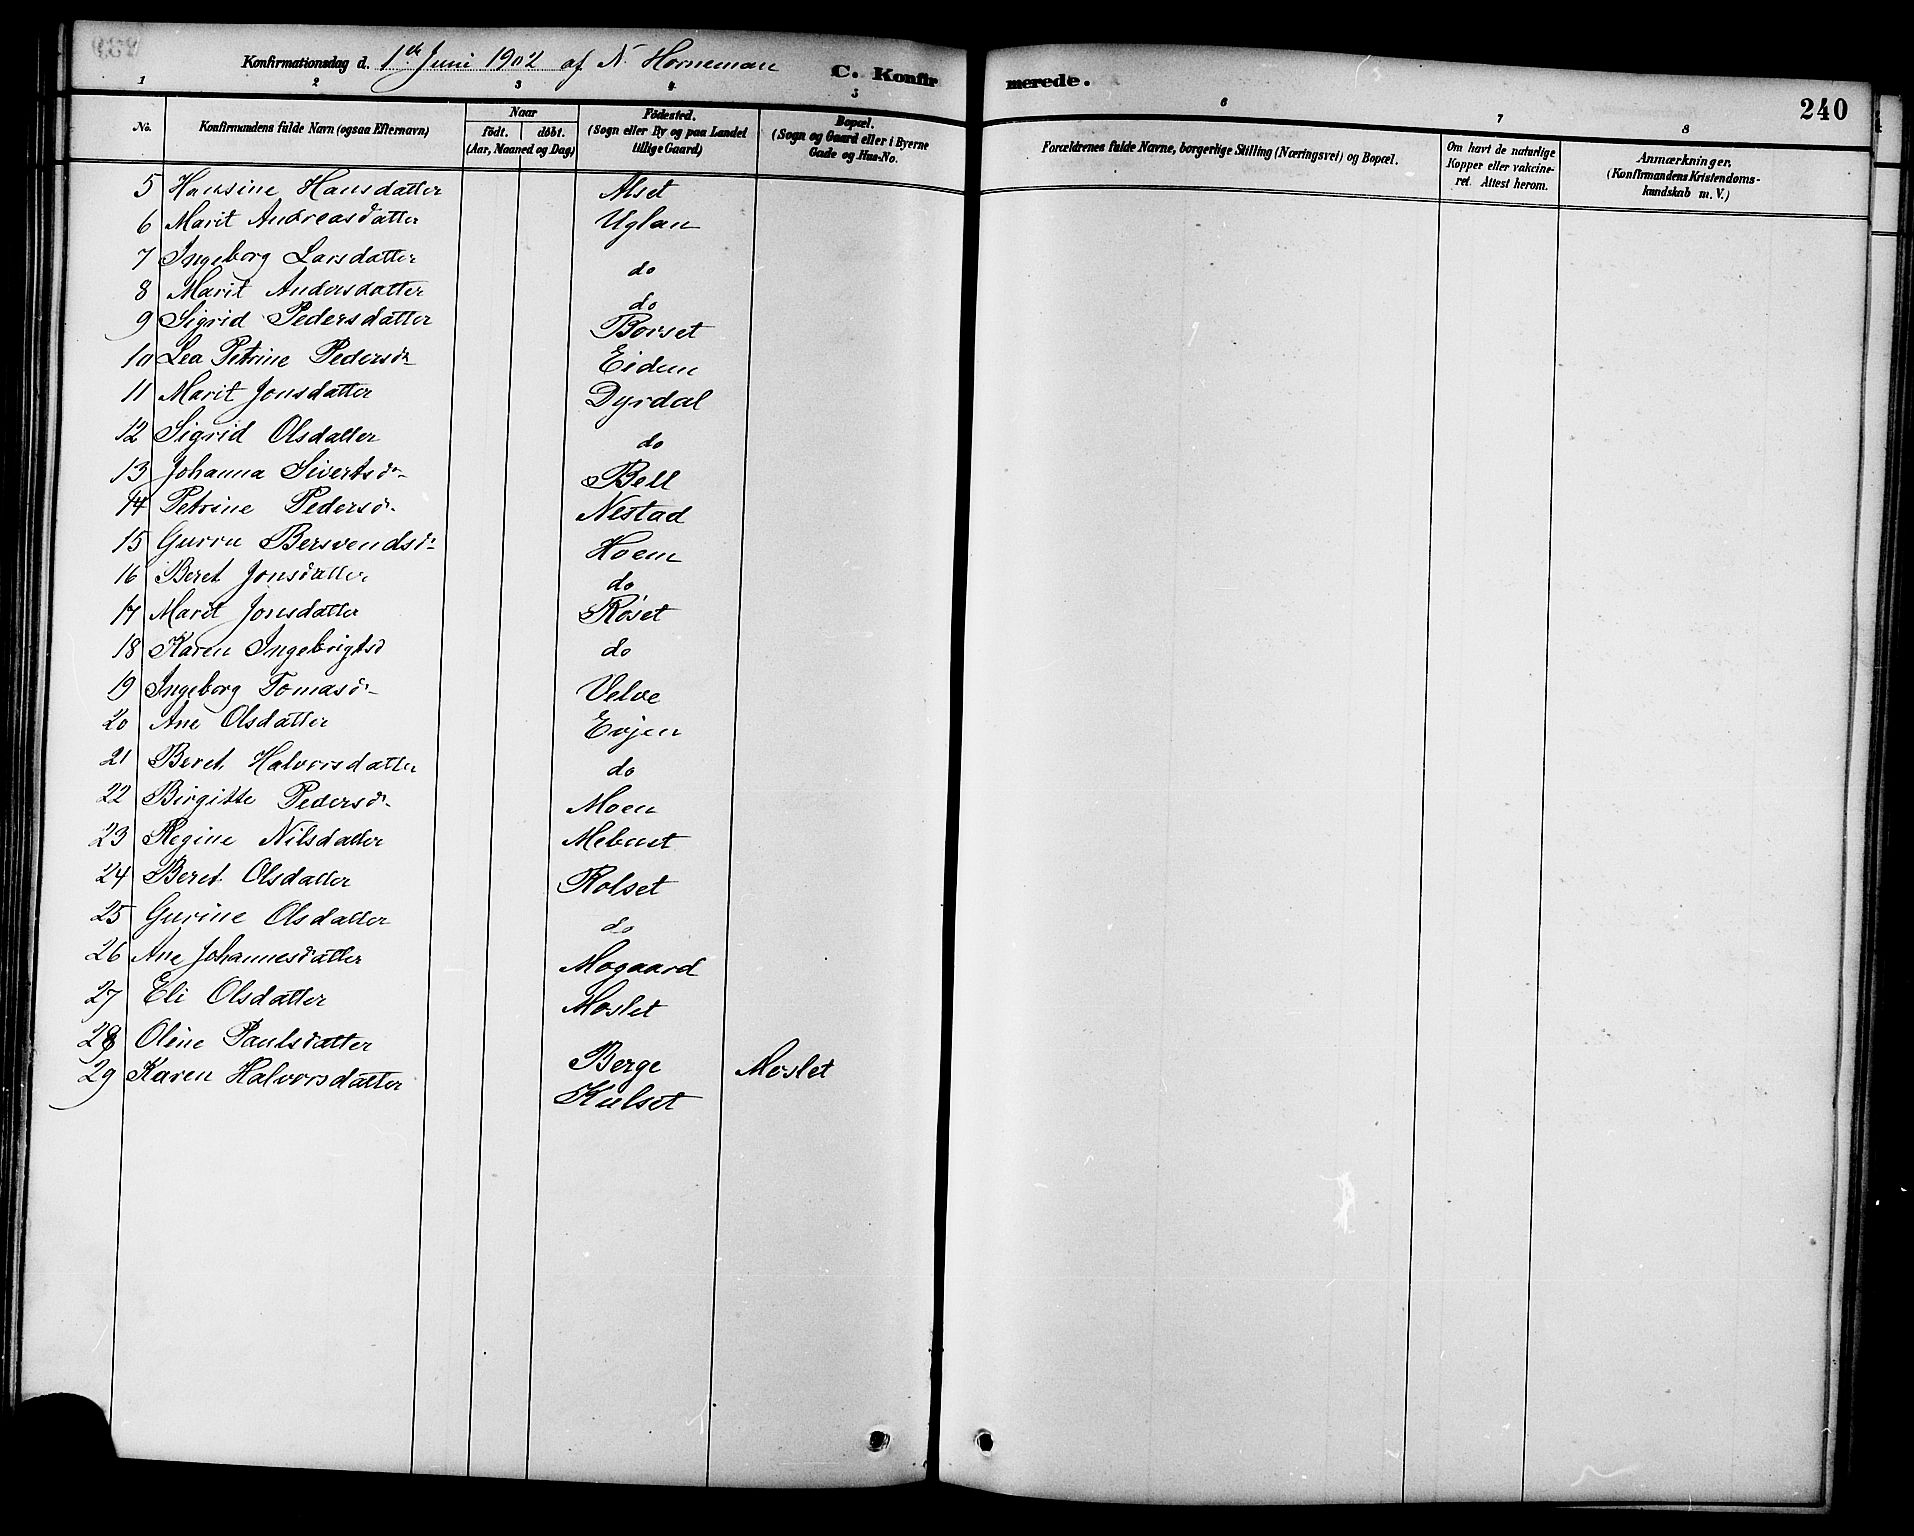 Konfirmationsdag d. 1ste Juni 1902 af N. Horneman C. Konfirmerede. 240
1 2 3 4 5 6 7 8
No. Konfirmandens fulde Navn (ogsaa Efternavn) Naar födt. döbt. (Aar, Maaned og Dag) Födested. (Sogn eller By og paa Landet tillige Gaard) Bopæl. (Sogn og Gaard eller i Byerne Gade og Hus-No. Forældrenes fulde Navne, borgerlige Stilling (Næringsvei) og Bopæl. Om havt de naturlige Kopper eller vakcineret. Attest herom. Anmærkninger. (Konfirmandens Kristendomskundskab m. V.)
5 Hansine Hansdatter Alset
6 Marit Andreasdatter Uglan
7 Ingeborg Larsdatter do
8 Marit Andersdatter do
9 Sigrid Pedersdatter Borset
10 Lea Petrine Pedersdr Eidem
11 Marit Jonsdatter Dyrdal
12 Sigrid Olsdatter do
13 Johanna Sivertsdr Bell
14 Petrine Pedersdr Nestad
15 Guru Bersvendsdr Hoem
16 Beret Jonsdatter do
17 Marit Jonsdatter Röset
18 Karen Ingebrigtsd do
19 Ingeborg Tomasdr Velve
20 Ane Olsdatter Evjen
21 Beret Halvorsdatter do
22 Birgitte Pedersdr Moen
23 Regine Nilsdatter Mebust
24 Beret Olsdatter Rolset
25 Gurine Olsdatter do
26 Ane Johannesdatter Mogaard
27 Eli Olsdatter Moslet
28 Oline Paulsdatter Berge Moslet
29 Karen Halvorsdatter Kulset